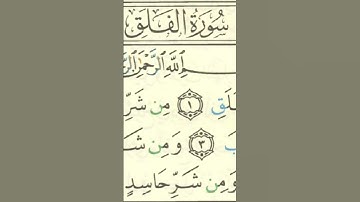 سُورَةُ الفَلَقِ
ـمِ ٱللَّهِ ٱلرَّحْمَٰنِ ٱلرَّ
لَقِ ١ مِن شَرِّ
بَ ٣ وَمِن شَـ
وَمِن شَرِّ حَاسِدٍ